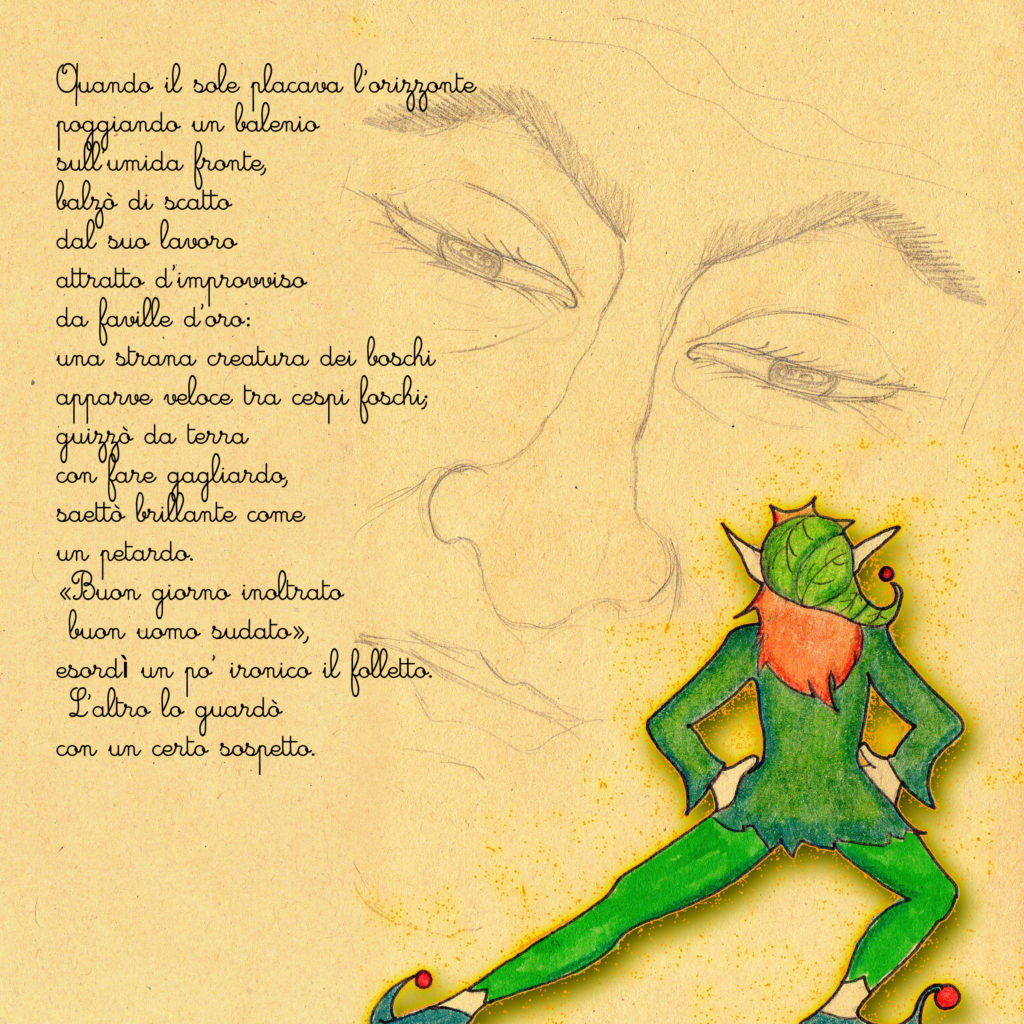 Quando il sole placava l'orizzonte
poggiando un balenio
sull'umida fronte,
balzò di scatto
dal suo lavoro
attratto d'improvviso
da faville d'oro:
una strana creatura dei boschi
apparve veloce tra cespi foschi;
guizzò da terra
con fare gagliardo,
saettò brillante come
un petardo.
«Buon giorno inoltrato
buon uomo sudato»,
esordì un po' ironico il folletto.
L'altro lo guardò
con un certo sospetto.